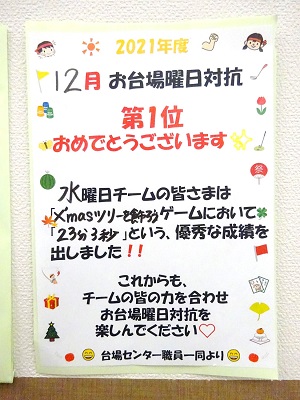 2021年度
12月 お台場曜日対抗
第1位
おめでとうございます
水曜日チームの皆さまは
「Xmasツリーを飾ろうゲームにおいて
「23分3秒」という、優秀な成績を
出しました!!
これからも、
チームの皆の力を合わせ
お台場曜日対抗を
楽しんでください♡
台場センター職員一同より